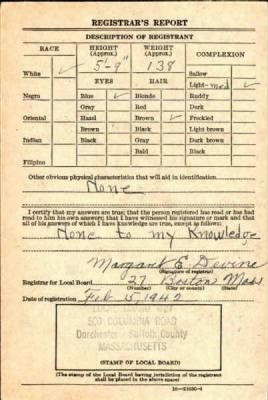 REGISTRAR'S REPORT
DESCRIPTION OF REGISTRANT
RACE HEIGHT (Approx.) WEIGHT (Approx.) COMPLEXION
White ✓ 5'-9" 138 Sallow
EYES HAIR Light— med ✓
Negro Blue ✓ Blonde Ruddy
Gray Red Dark
Oriental Hazel Brown ✓ Freckled
Brown Black Light brown
Indian Black Gray Dark brown
Bald Black
Filipino
Other obvious physical characteristics that will aid in identification
None
I certify that my answers are true; that the person registered has read or has had
read to him his own answers; that I have witnessed his signature or mark and that
all of his answers of which I have knowledge are true, except as follows:
None to my Knowledge
Margaret E. Devine
(Signature of registrar)
Registrar for Local Board 27 Boston Mass
(Number) (City or county) (State)
Date of registration Feb 15, 1942
500 COLUMBIA ROAD
Dorchester - Suffolk County
MASSACHUSETTS
(STAMP OF LOCAL BOARD)
(The stamp of the Local Board having jurisdiction of the registrant
shall be placed in the above space.)